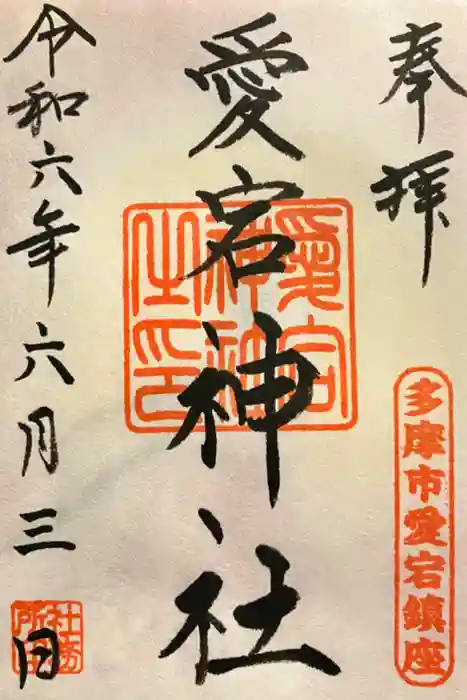 奉拝
多摩市愛宕鎮座
愛宕神社
愛宕神社之印
令和六年六月三日
社務所印